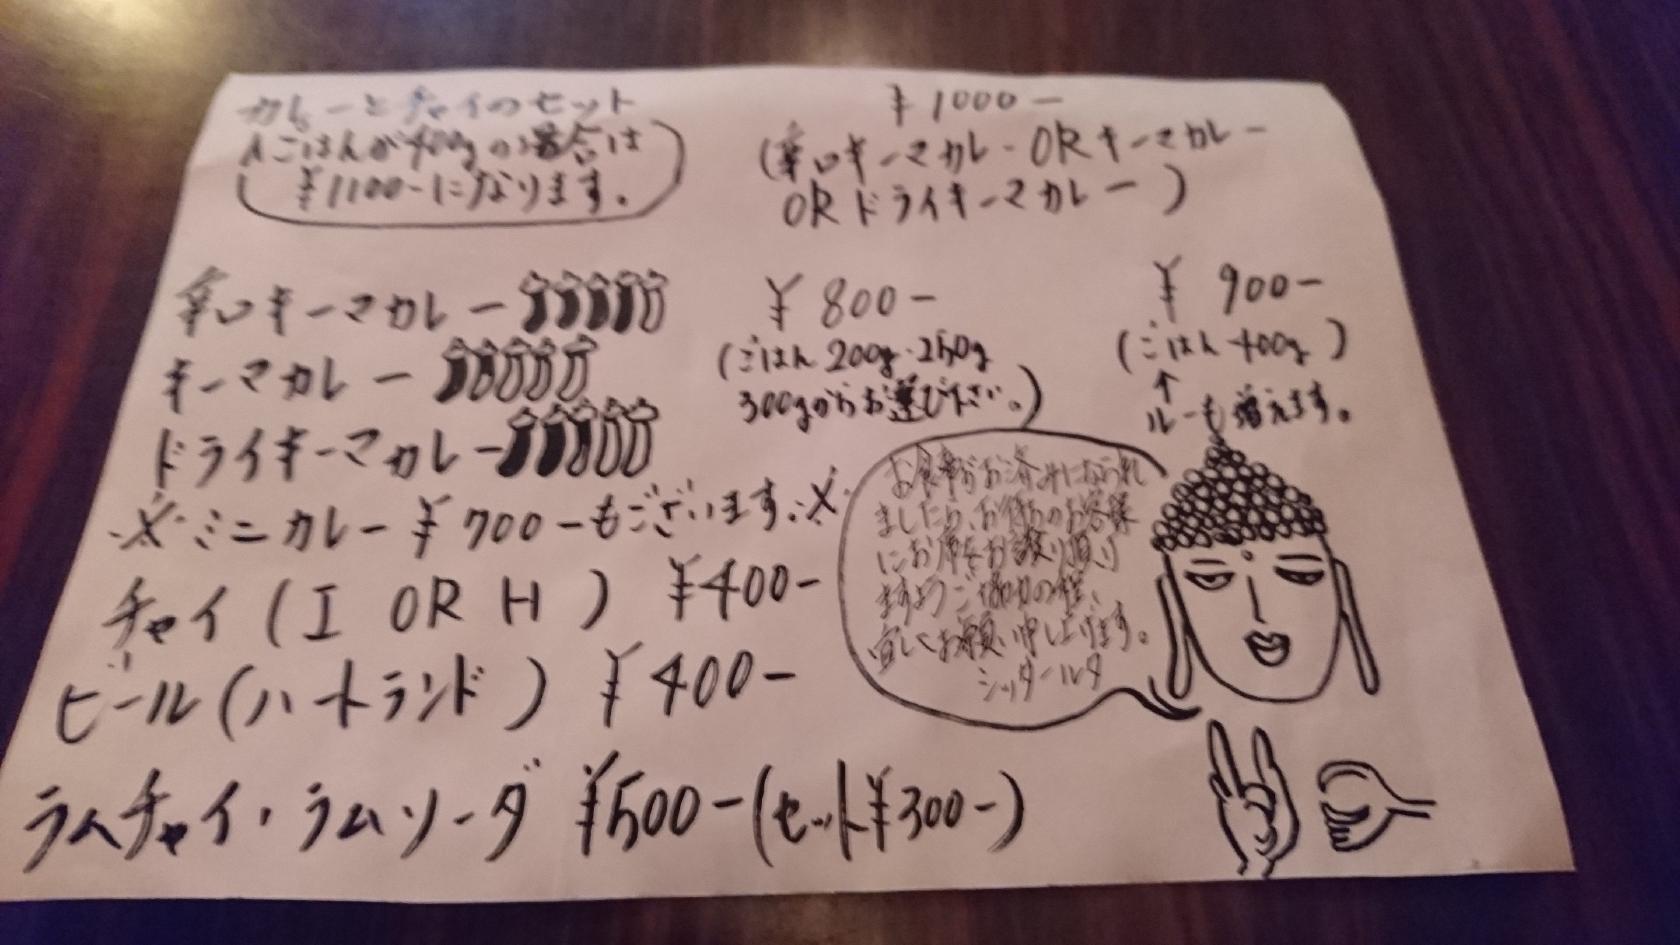 カレーとチャイのセット ¥1000-
ごはんが400gの場合は
¥1100-になります。
(辛口キーマカレー OR キーマカレー
OR ドライキーマカレー)
辛口キーマカレー ¥800- ¥900-
キーマカレー (ごはん200g・250g
300gからお選び下さい。)
(ごはん400g)
↑
ルーも増えます。
ドライキーマカレー
※ミニカレー¥700-もございます.※
チャイ(I OR H) ¥400-
ビール(ハートランド) ¥400-
ラムチャイ・ラムソーダ ¥500-(セット¥300-)
お食事がお済みになられ
ましたら、お待ちのお客様
にお席をお譲り頂け
ますようご協力の程、
宜しくお願い申し上げます。
シッダールタ